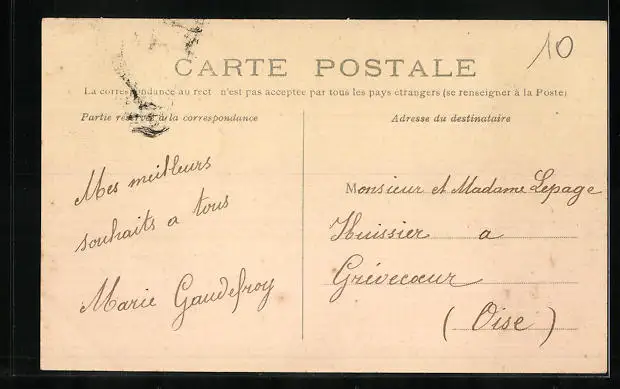 10
CARTE POSTALE
La correspondance au rect n'est pas acceptée par tous les pays étrangers (se renseigner à la Poste)
Partie réservée à la correspondance
Adresse du destinataire
Mes meilleurs
souhaits a tous
Marie Gaudefroy
Monsieur et Madame Lepage
Huissier a
Grévecœur
(Oise)